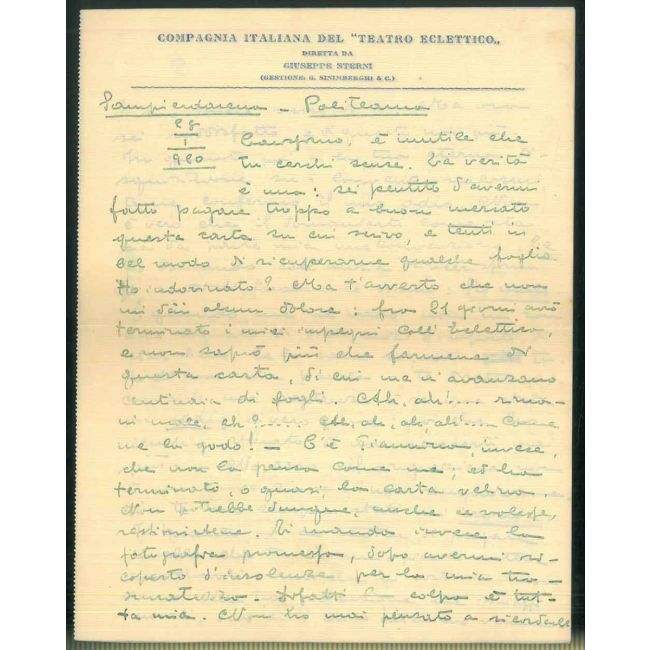 COMPAGNIA ITALIANA DEL "TEATRO ECLETTICO„
DIRETTA DA
GIUSEPPE STERNI
(GESTIONE: G. SINIMBERGHI & C.)
Sampierdarena - Politeama
28
1
920
è inutile che
tu cerchi scuse. La verità
è una: sei pentito d'avermi
fatto pagare troppo a buon mercato
questa carta su cui scrivo, e tenti in
bel modo di ricuperarne qualche foglio
Ho indovinato? Ma t'avverto che non
mi dài alcun dolore: fra 21 giorni avrò
terminato i miei impegni coll'Eclettico,
e non saprò più che farmene di
questa carta, di cui me n'avanzano
centinaia di fogli. Ah, ah!.... rima-
ni male, eh?.... Ah, ah, ah, ah!... Come
me la godo! - C'è Giannino, invece,
che non la pensa come me, ed ha
terminato, o quasi, la carta velina.
Non potrebbe dunque, anche se volesse,
restituirtene. Ti mando invece la
fotografia promessa, dopo avermi ri-
coperto d'insolenze per la mia tra-
scuratezza. Infatti la colpa è tut-
ta mia. Non ho mai pensato a ricordarle